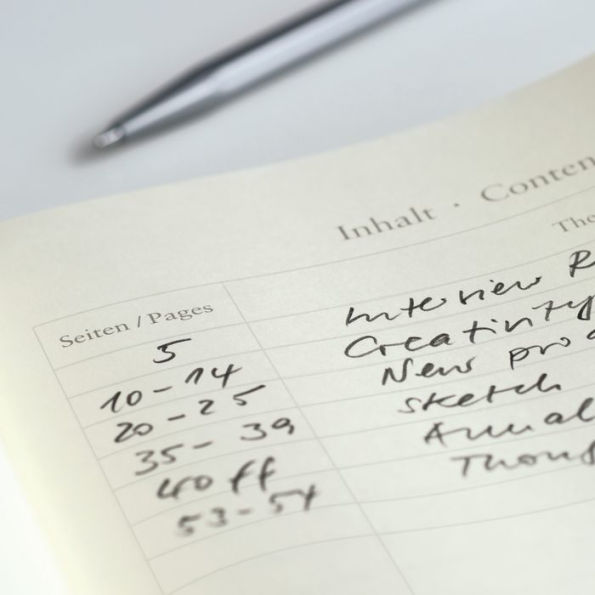 Inhalt · Conten
Seiten / Pages The
5 Interview R
10 - 14 Creativity
20 - 25 New pro
35 - 39 sketch
40 ff Annual
53 - 54